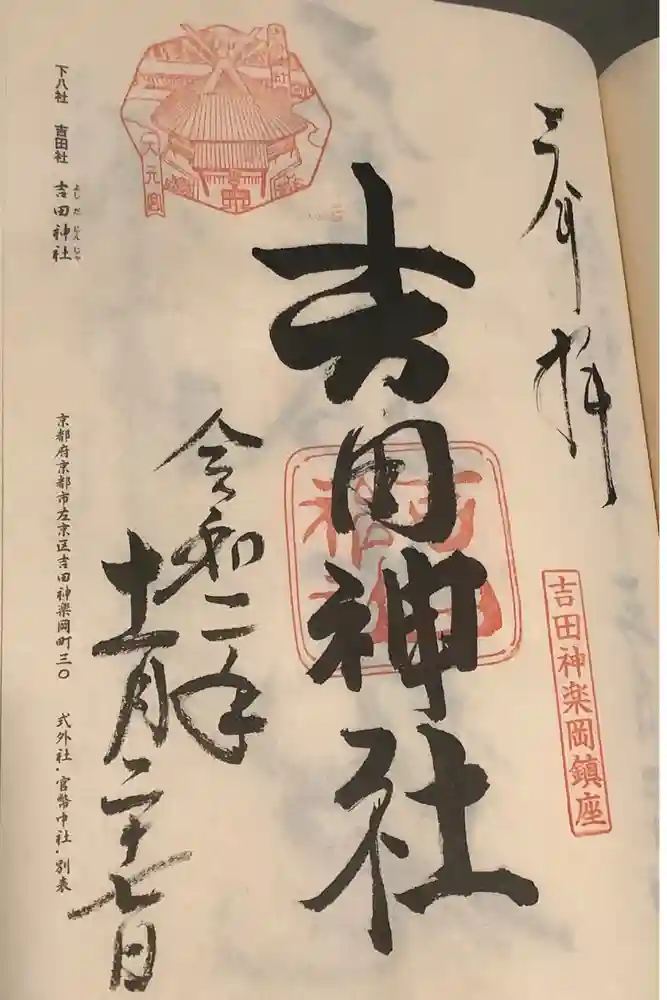 奉拝
吉田神楽岡鎮座
吉田神社
令和二年
十一月二十七日
大元宮
下八社 吉田社 吉田神社
よしだじんじゃ
京都府京都市左京区吉田神楽岡町三〇 式外社・官幣中社・別表